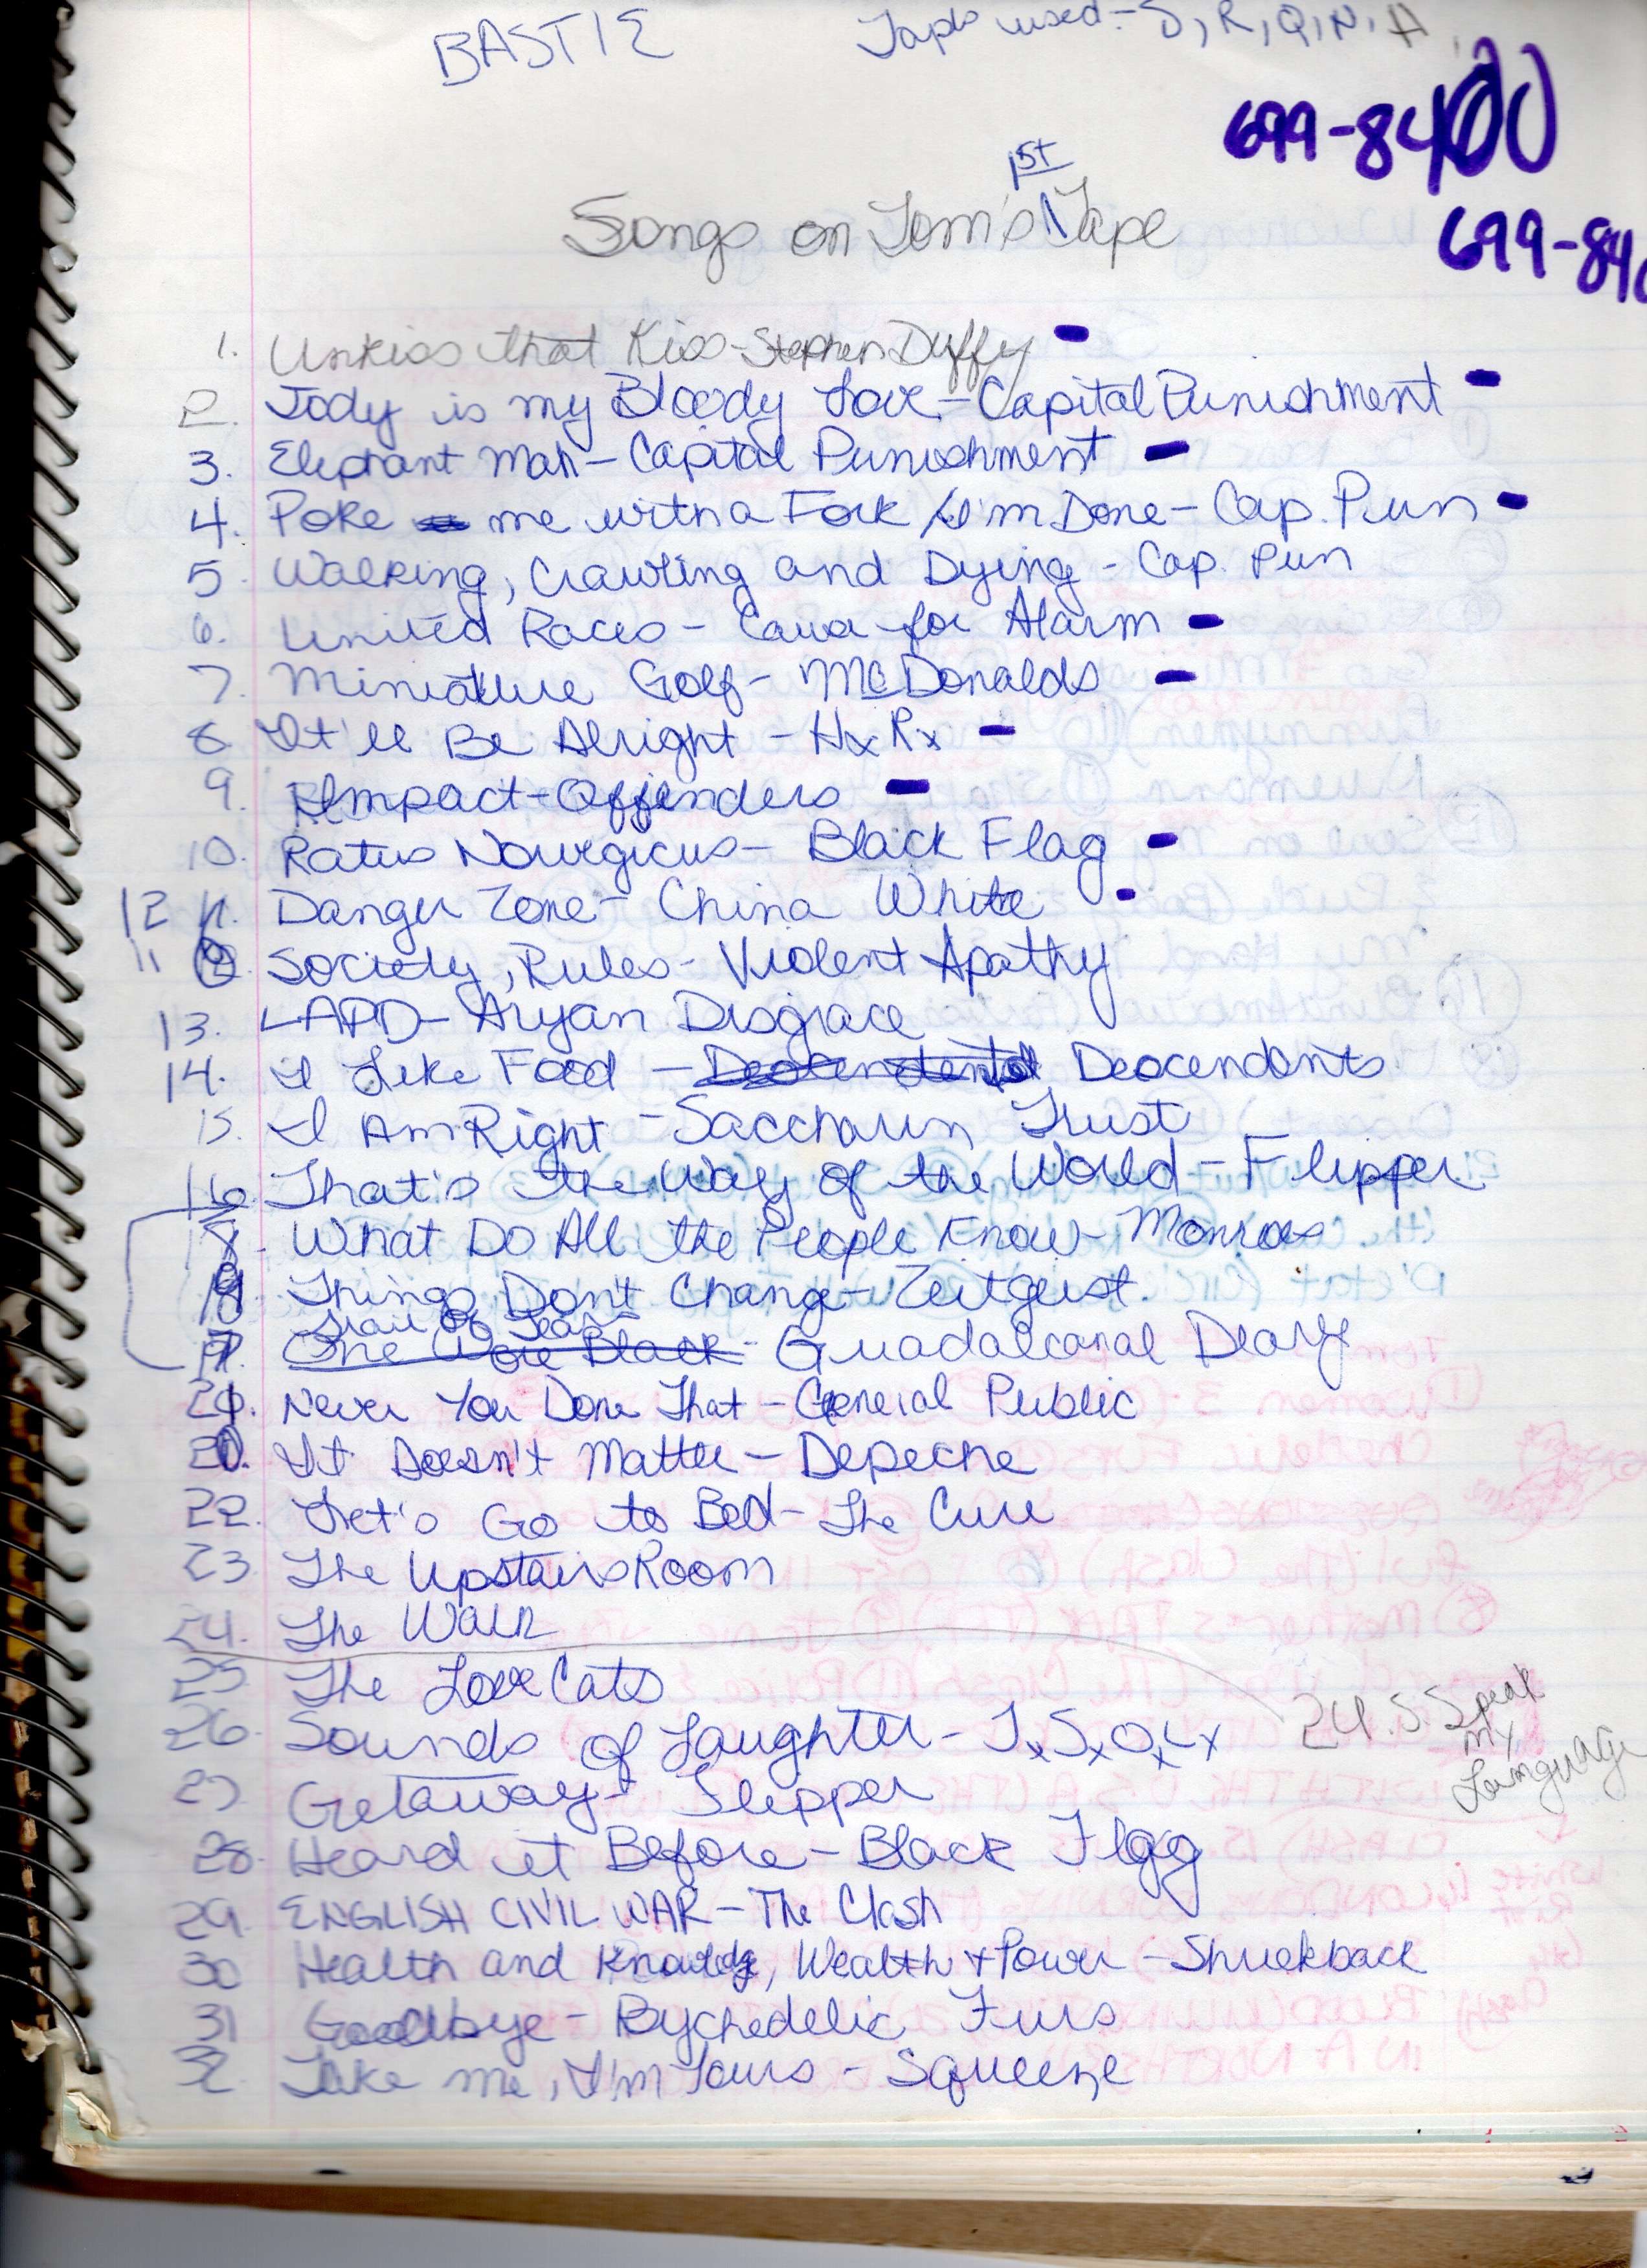 BASTIE
Tapes used - S, R, Q, N, A
699-84
699-84
1st
Songs on Tom's Tape
1. Unkiss that Kiss - Stephen Duffy
2. Jody is my Bloody Love - Capital Punishment
3. Elephant Man - Capital Punishment
4. Poke me with a Fork / I'm Done - Cap. Pun
5. Walking, Crawling and Dying - Cap. Pun
6. United Races - Cause for Alarm
7. Miniature Golf - McDonalds
8. It'll Be Alright - HxRx
9. Impact - Offenders
10. Ratus Nourgicus - Black Flag
12 11. Danger Zone - China White
11 12. Society, Rules - Violent Apathy
13. LAPD - Aryan Disgrace
14. I Like Food - Descendents
15. I Am Right - Saccharin Trust
16. That's the Way of the World - Flipper
18. What Do All the People Know - Monroes
19. Things Don't Change - Zeitgeist
Trail of Tears
17. One Wore Black - Guadalcanal Diary
20. Never You Done That - General Public
21. It Doesn't Matter - Depeche
22. Let's Go to Bed - The Cure
23. The Upstairs Room
24. The Walk
25. The LoveCats
24.5 Speak
My
Language
26. Sounds of Laughter - TxSxOxLx
27. Getaway - Flipper
28. Heard it Before - Black Flag
29. ENGLISH CIVIL WAR - The Clash
30 Health and Knowledge, Wealth + Power - Shriekback
31 Goodbye - Psychedelic Furs
32. Take me, I'm Yours - Squeeze